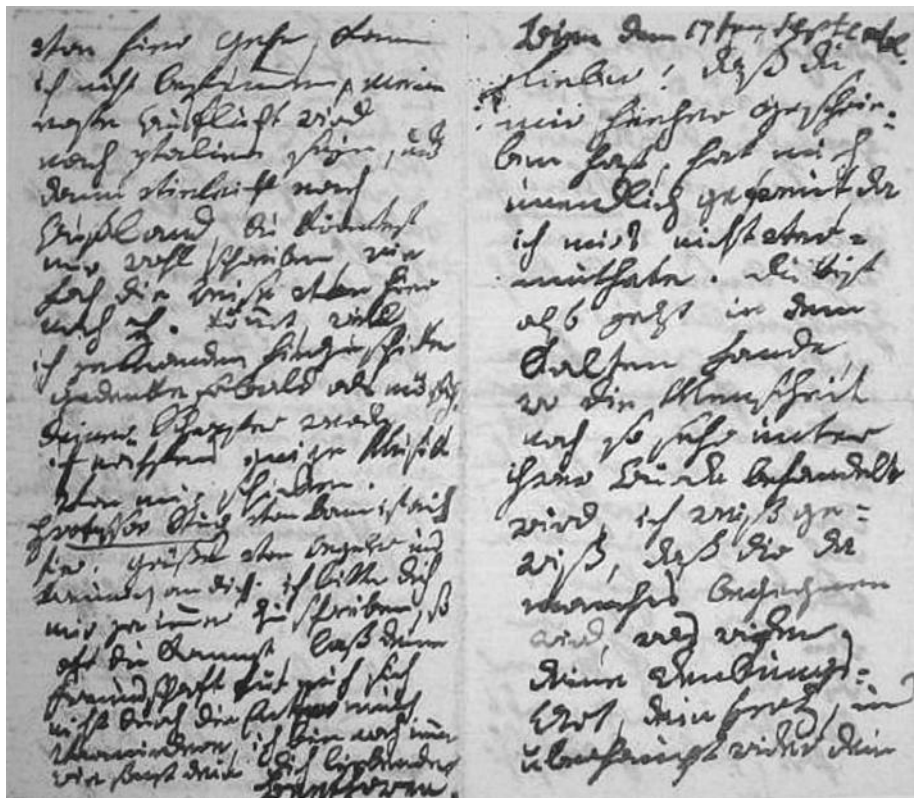 von hier gehe, kann
ich nicht bestimmen, meine
erste Ausflucht wird
nach Italien seyn, und
dann vieleicht nach
Rußland, du könntest
mir wohl schreiben wie
hoch die Reise von hier
nach P. kömmt, weil
ich jemanden hinzuschicken
gedenke sobald als möglich.
deiner Schwester werde
ich nächstens einige Musick
von mir schicken.
Professor Stup von Bonn ist auch
hier. grüße von Wegeler und
an dich. ich bitte dich
mir ja immer zu schreiben, so
oft du kannst, laß deine
Freundschaft für mich sich
nicht durch die Entfernung
vermindern, ich bin noch immer
wie sonst dein dich liebender
Beethowen.
Wien den 17ten September.
Lieber! daß du
mir hieher geschrie=
ben hast, hat mich
unendlich gefreut da
ich mirs nicht ver=
muthete. du bist
also jezt in dem
Kalten Lande,
wo die Menschheit
noch so sehr unter
ihrer Würde behandelt
wird, ich weiß ge=
wiß, daß dir da
manches begegnen
wird, was wider
deine Denkungs=
Art, dein Herz, und
überhaupt wider dein